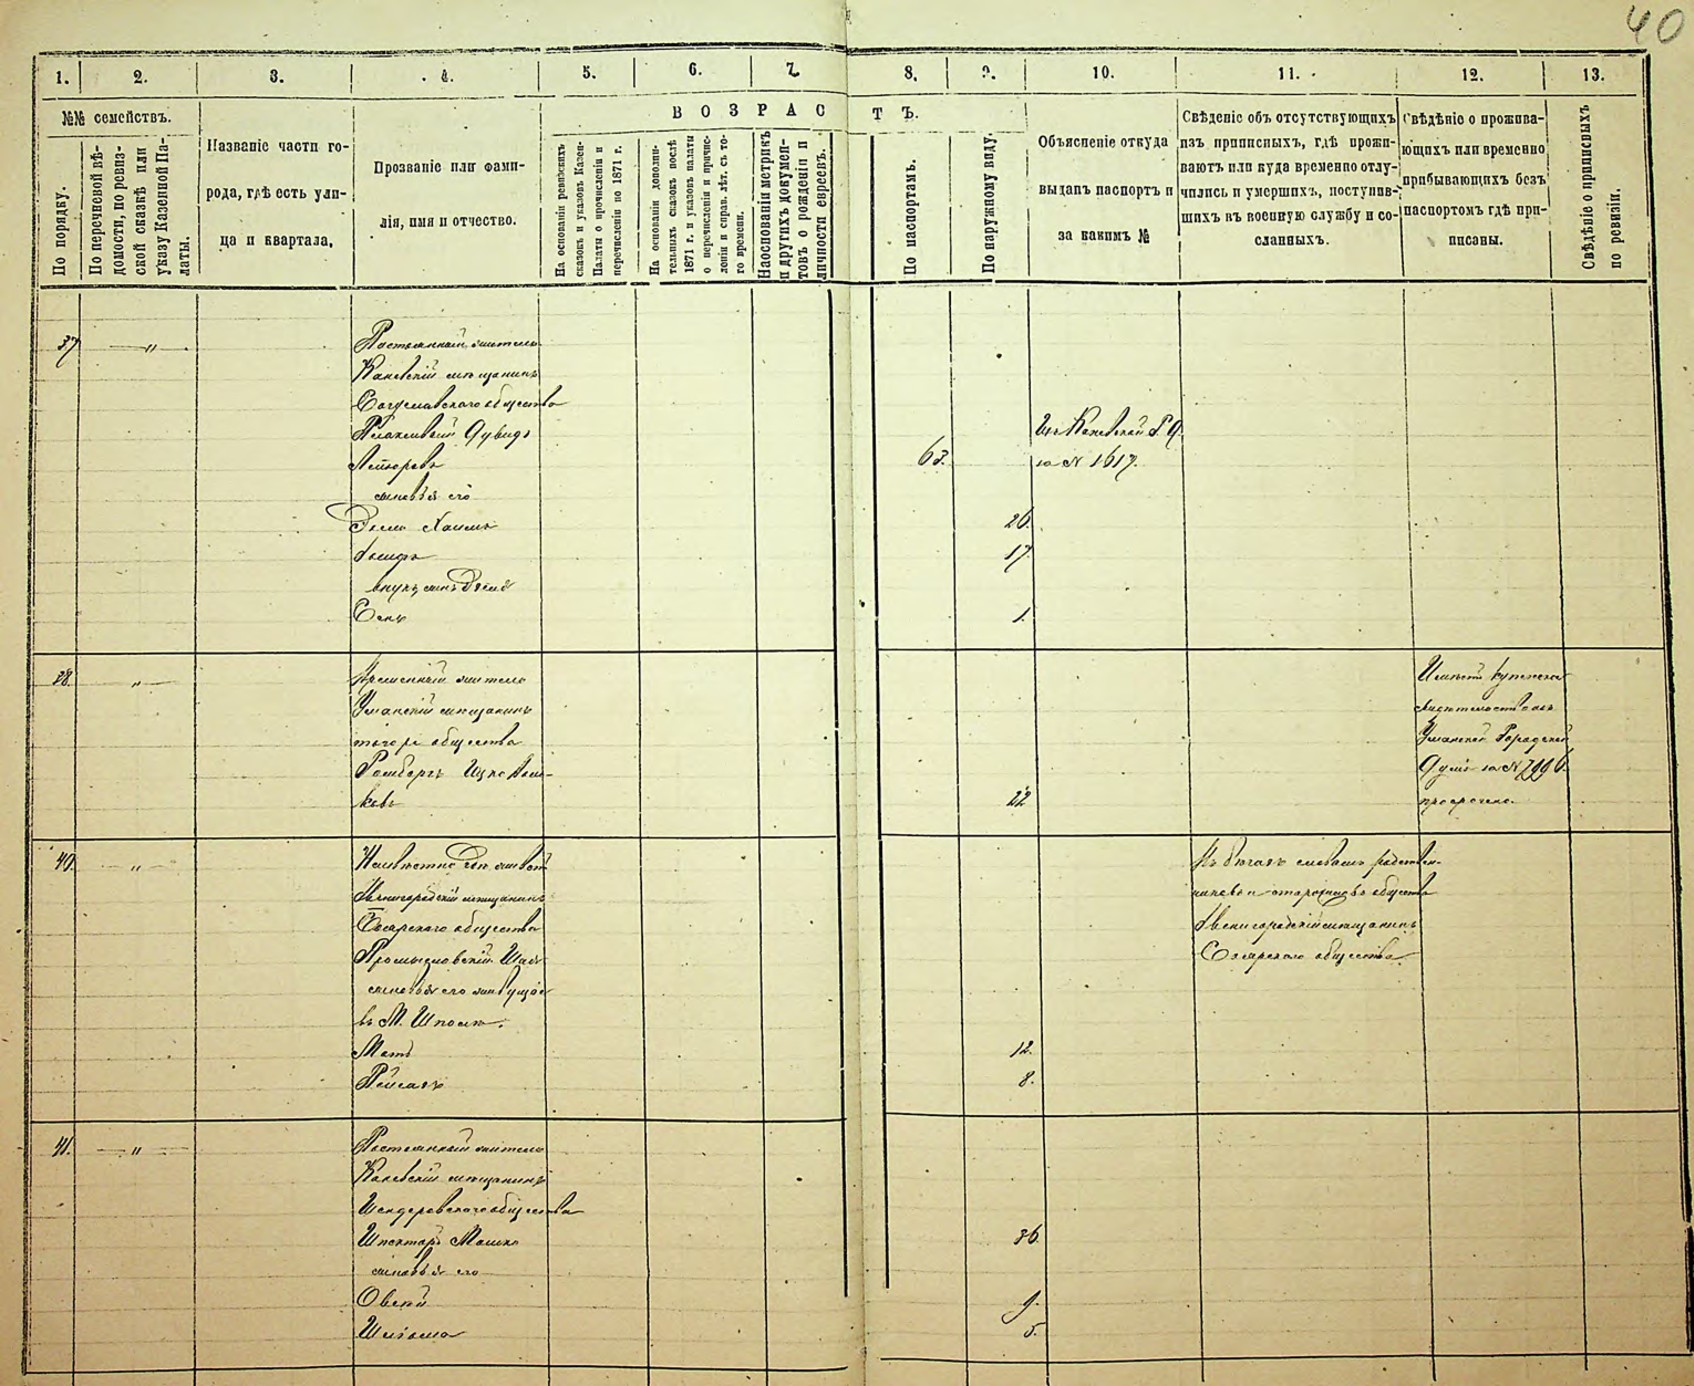 40
1. 2. 3. 4. 5. 6. 7. 8. 9. 10. 11. 12. 13.
№№ семействъ.
По порядку.
По перечневой вѣ-
домости, по ревиз-
ской сказкѣ или
указу Казенной Па-
латы.
Названіе части го-
рода, гдѣ есть ули-
ца и квартала.
Прозваніе или фами-
лія, имя и отчество.
ВОЗРАСТЪ.
На основаніи ревизскихъ
сказокъ и указовъ Казен-
Палаты о причисленіи и
перечисленіи по 1871 г.
На основаніи дополни-
тельныхъ сказокъ послѣ
1871 г. и указовъ палаты
о перечисленіи и причис-
леніи и справ. лѣт. съ то-
го времени.
На основаніи метрикъ
и другихъ докумен-
товъ о рожденіи и
личности евреевъ.
По паспортамъ.
По наружному виду.
Объясненіе откуда
выданъ паспортъ и
за какимъ №
Свѣденіе объ отсутствующихъ
изъ приписныхъ, гдѣ прожи-
ваютъ или куда временно отлу-
чились и умершихъ, поступив-
шихъ въ военную службу и со-
сланныхъ.
Свѣдѣніе о прожива-
ющихъ или временно
прибывающихъ безъ
паспортомъ гдѣ при-
писаны.
Свѣдѣніе о приписныхъ
по ревизіи.
37 — " —
Постоянный житель
Каневскій мѣщанинъ
Богуславскаго общества
Дувидъ
Лейзоровъ 63.
Изъ Каневской Г. Д.
за № 1617.
сыновья его
Хаимъ 26.
Іосифъ 17.
внукъ, сынъ
1.
38. "
Временный житель
Уманскій мѣщанинъ
того же общества
Ицко
22
Имѣетъ купческое
свидѣтельство изъ
Уманской Городской
Думы за №
просрочено.
40. — " —
Неизвѣстно гдѣ живетъ
Звенигородскій мѣщанинъ
общества
Шая
сыновья его живущіе
въ М. Шполѣ.
12.
Пейсахъ 8.
Въ бѣгахъ
общества
Звенигородскій мѣщанинъ
общества
41. — " —
Постоянный житель
Каневскій мѣщанинъ
общества
Мошко 36.
сыновья его
Овсей 9.
Шліома 5.